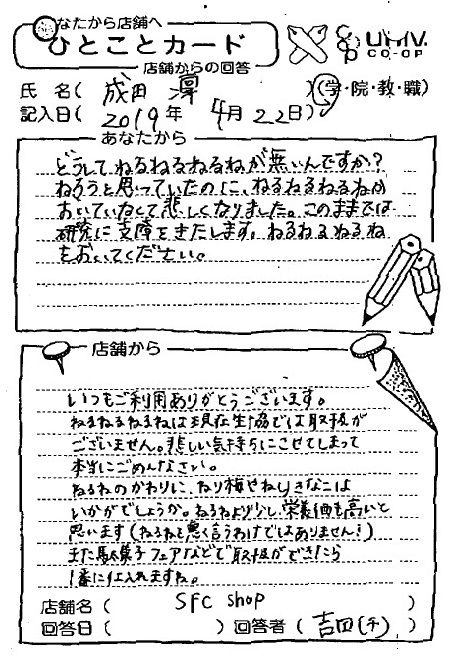 あなたから店舗へ
ひとことカード
店舗からの回答
UNIV.
CO-OP
氏名( 成田 凜 )(学・院・教・職)
記入日( 2019年 4月22日)
あなたから
どうして、ねるねるねるねが無いんですか?
ねろうと思っていたのに、ねるねるねるねが
おいていなくて悲しくなりました。このままでは
研究に支障をきたします。ねるねるねるね
をおいてください。
店舗から
いつもご利用ありがとうございます。
ねるねるねるねは現在生協では取扱が
ございません。悲しい気持ちにさせてしまって
本当にごめんなさい。
ねるねのかわりに、ねり梅やねりきなこは
いかがでしょうか。ねるねより少し、栄養価も高いと
思います(ねるねを悪く言うわけではありません!)
また駄菓子フェアなどで取扱ができたら
1番に仕入れますね。
店舗名( SFC shop )
回答日( )回答者( 吉田(千) )